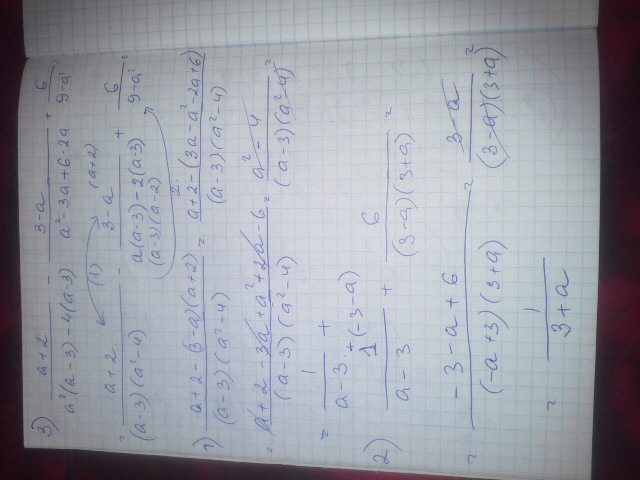 3) (a+2)/(a²(a-3)-4(a-3)) - (3-a)/(a²-3a+6-2a) + 6/(9-a²) =
(1) (a+2)
= (a+2)/((a-3)(a²-4)) - (3-a)/(a(a-3)-2(a-3)) + 6/(9-a²) =
(a-3)(a-2)
2.
1) (a+2-(3-a)(a+2))/((a-3)(a²-4)) = (a+2-(3a-a²-2a+6))/((a-3)(a²-4))
= (a+2-3a+a²+2a-6)/((a-3)(a²-4)) = (a²-4)/((a-3)(a²-4)) =
= 1/(a-3) +
+(-3-a)
2) 1/(a-3) + 6/((3-a)(3+a)) =
= (-3-a+6)/((-a+3)(3+a)) = (3-a)/((3-a)(3+a)) =
= 1/(3+a)